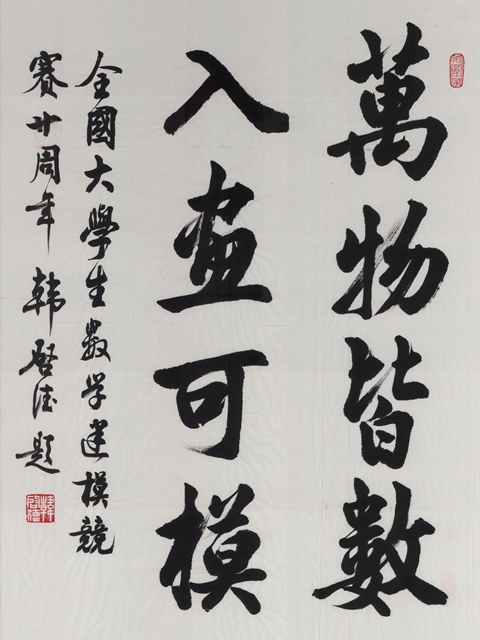 萬物皆數
入画可模
全國大學生数学建模競
赛廿周年 韩启德题